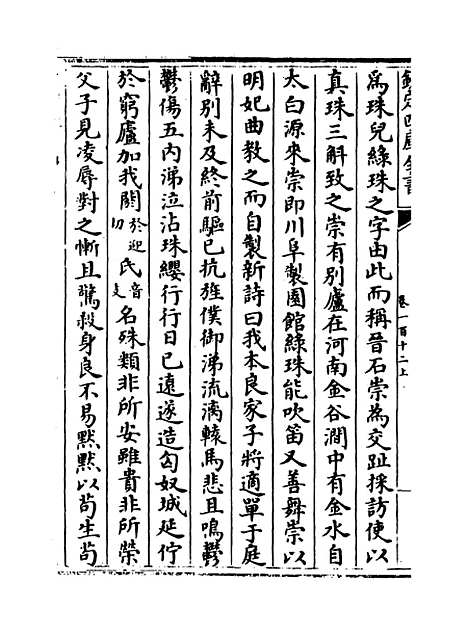 欽定四庫全書
卷一百十二上
為珠兒綠珠之字由此而稱晉石崇為交趾採訪使以
真珠三斛致之崇有別廬在河南金谷澗中有金水自
太白源來崇即川阜製園館綠珠能吹笛又善舞崇以
明妃曲教之而自製新詩曰我本良家子將適單于庭
辭別未及終前驅已抗旌僕御涕流漓轅馬悲且鳴鬱
鬱傷五內涕泣沾珠纓行行日已遠遂造匈奴城延佇
於窮廬加我閼於迎切氏音支名殊類非所安雖貴非所榮
父子見凌辱對之慚且驚殺身良不易默默以苟生苟